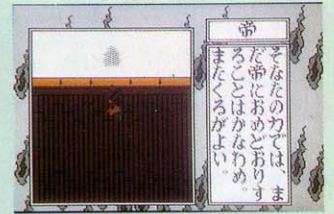 帝
そなたの力では、ま
だ帝におめどおりす
ることはかなわぬ。
またくるがよい。